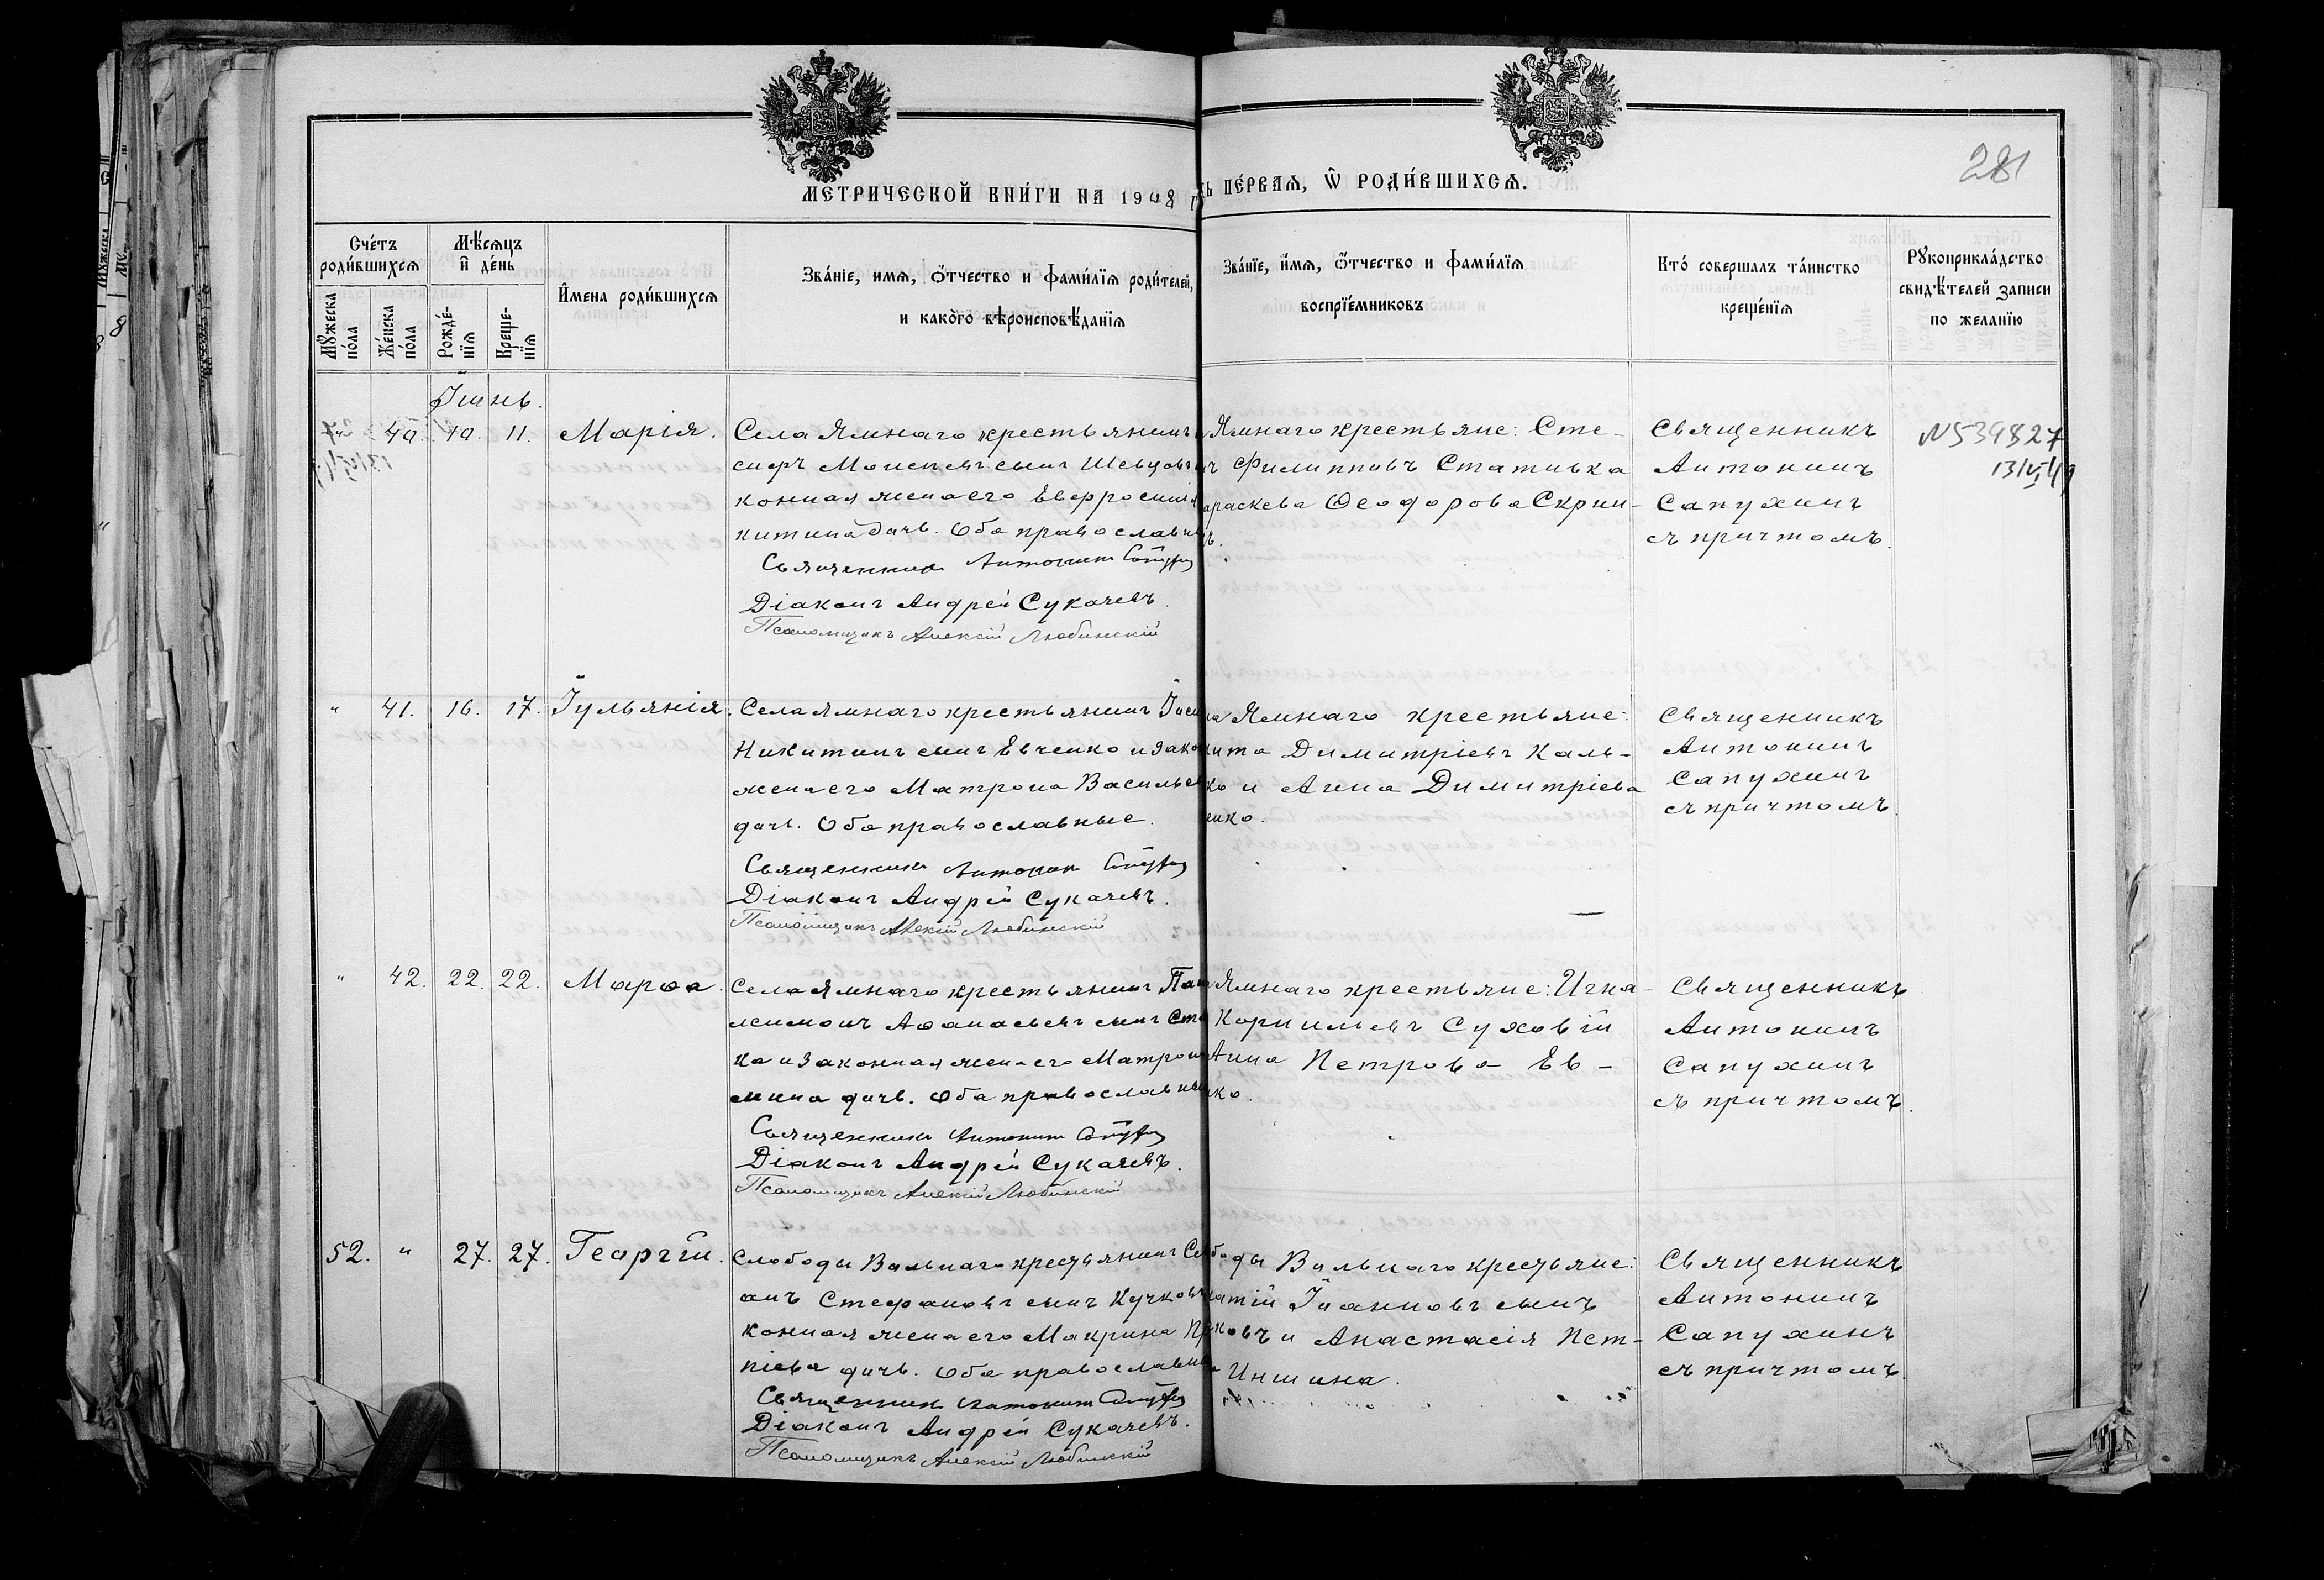 281
МЕТРИЧЕСКОЙ КНИГИ НА 1908 г
ПЕРВАЯ, Ѿ РОДИВШИХСЯ.
Счетъ родившихся
Мѣсяцъ и день
Мужеска пола
Женска пола
Рождения
Крещения
Имена родившихся
Званіе, имя, ѿтчество и фамилія родителей,
и какого вѣроисповѣданія
Званіе, имя, ѿтчество и фамилія
воспріемниковъ
Кто совершалъ таинство
крещенія
Рукоприкладство
свидѣтелей записи
по желанію
Іюнь.
40. 10. 11. Марія.
Села Ямнаго крестьянинъ
сифъ Моисеевъ сынъ Шевцовъ
конная жена его Евфросинія
китина дочь. Оба православн
Священникъ Антонинъ
Діаконъ Андрей Сукачевъ.
Псаломщикъ Алексій Любинскій
Ямнаго крестьяне: Сте-
Филипповъ Стативка
араскева Ѳеодорова Скрип-
Священникъ
Антонинъ
Сапухинъ
съ причтомъ.
N539827
13/VI 49
" 41. 16. 17. Іульянія.
Села Ямнаго крестьянинъ
Никитинъ сынъ Евченко и зако
жена его Матрона Васильев
дочь. Оба православные.
Священникъ Антонинъ
Діаконъ Андрей Сукачевъ.
Псаломщикъ Алексій Любинскій
Ямнаго крестьяне:
кита Димитріевъ Каль-
ко и Анна Димитріева
енко.
Священникъ
Антонинъ
Сапухинъ
съ причтомъ.
" 42. 22. 22. Марѳа.
Села Ямнаго крестьянинъ Пан
лсимонъ Аѳанасьевъ сынъ Ста
ка и законная жена его Матрона
мина дочь. Оба православны
Священникъ Антонинъ
Діаконъ Андрей Сукачевъ.
Псаломщикъ Алексій Любинскій
Ямнаго крестьяне: Игна-
Корнильевъ Суховій
Анна Петрова Ев-
ко.
Священникъ
Антонинъ
Сапухинъ
съ причтомъ.
52. " 27. 27. Георгій.
Слободы Вольнаго крестьянинъ
анъ Стефановъ сынъ Кучковъ
конная жена его Макрина
піева дочь. Оба православн
Священникъ Антонинъ
Діаконъ Андрей Сукачевъ.
Псаломщикъ Алексій Любинскій
боды Вольнаго крестьяне:
натій Іоанновъ сынъ
ковъ и Анастасія Пет-
Иншина.
Священникъ
Антонинъ
Сапухинъ
съ причтомъ.